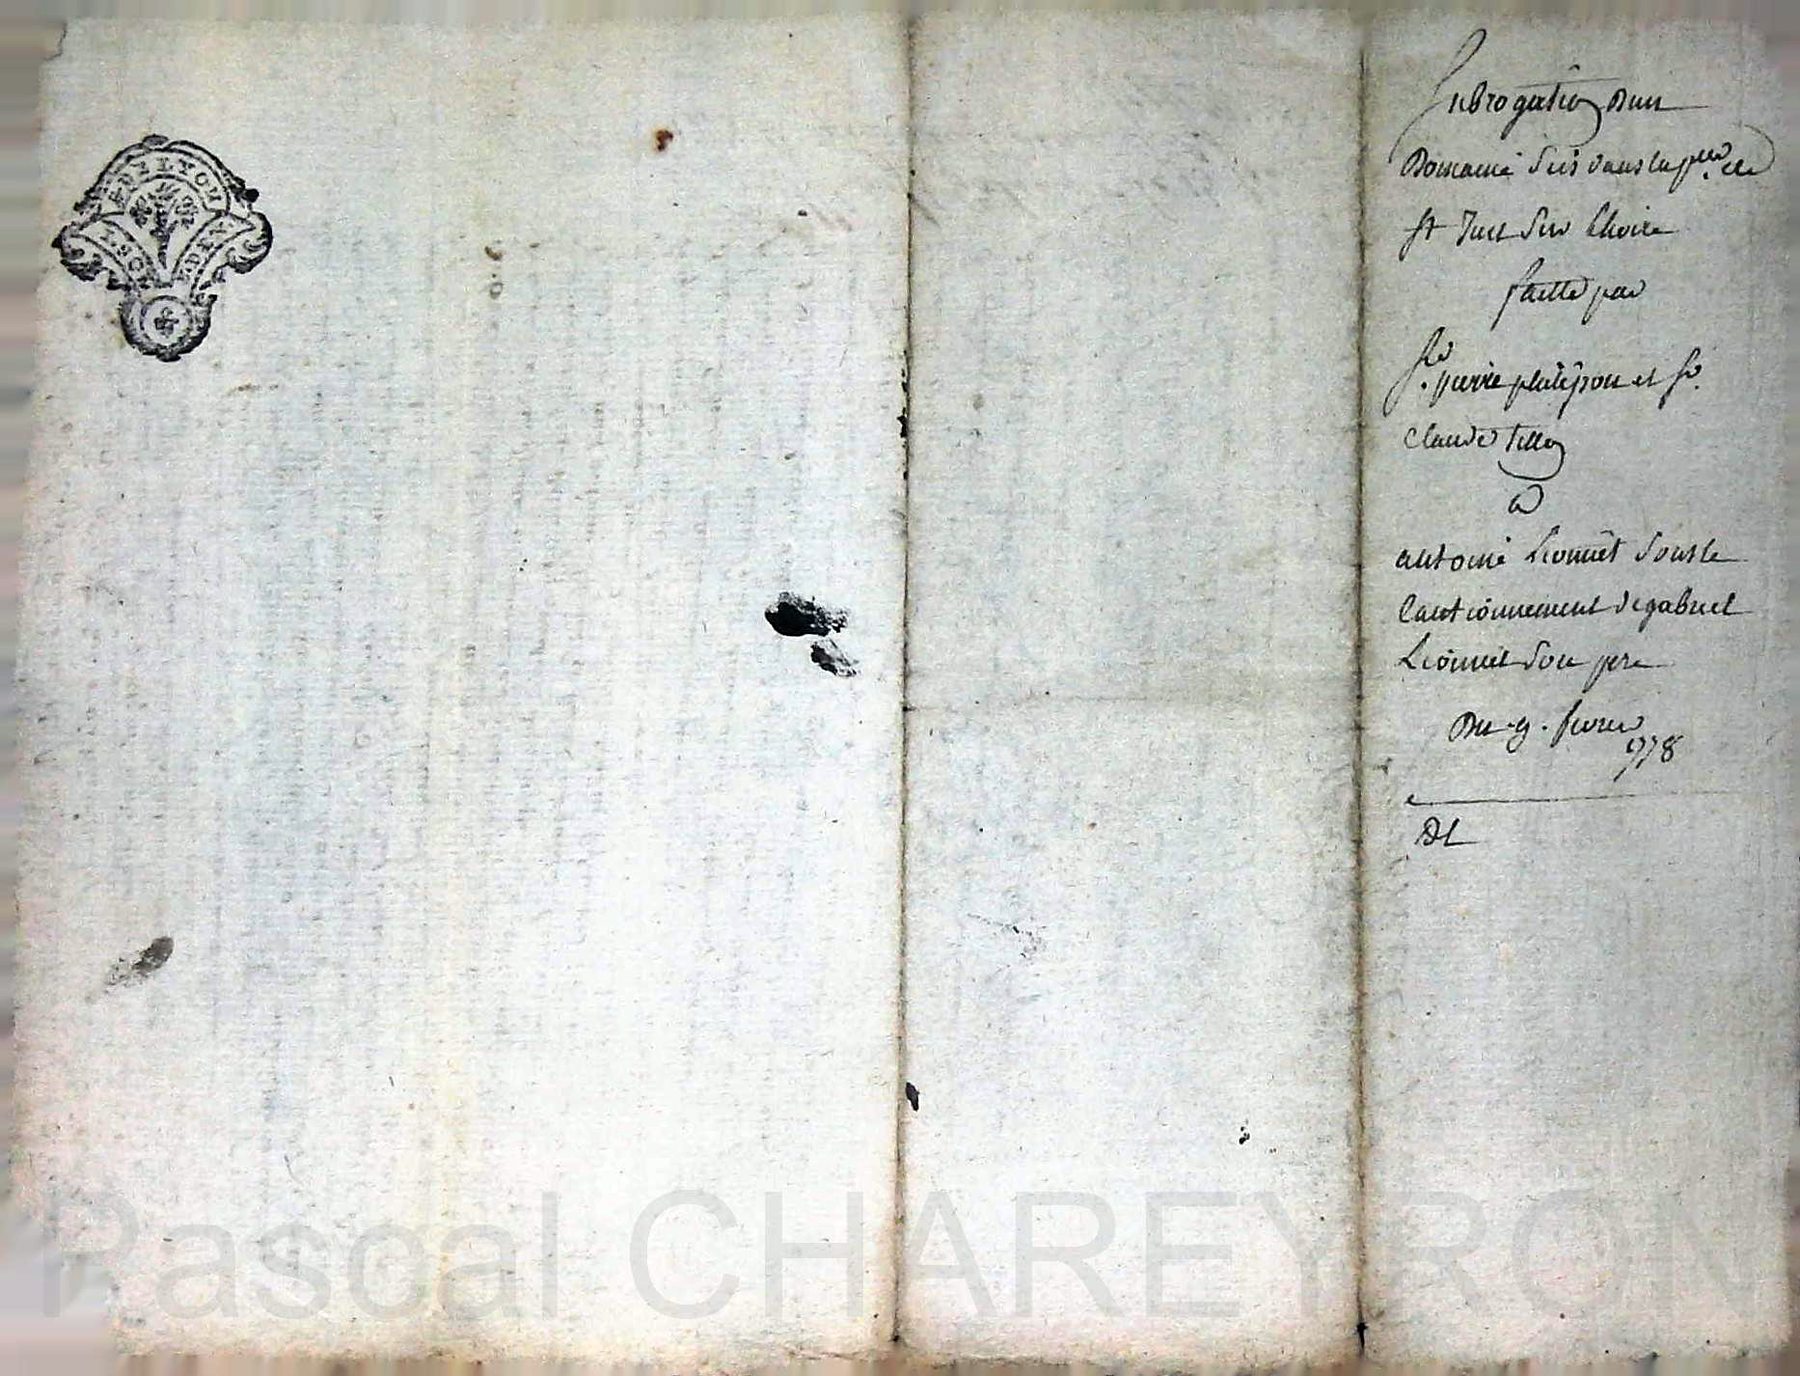 GEN. DE LYON
Subrogation Dun
Domaine Scis dans la psse. de
st Just sur Loire
faitte par
sr. pierre et sr.
Claude tillon
a
antoine Lionnêt sous le
Cautionnement de gabriel
Lionnet Son pere
Du 9. fevrier
1778
DL
Pascal CHAREYRON